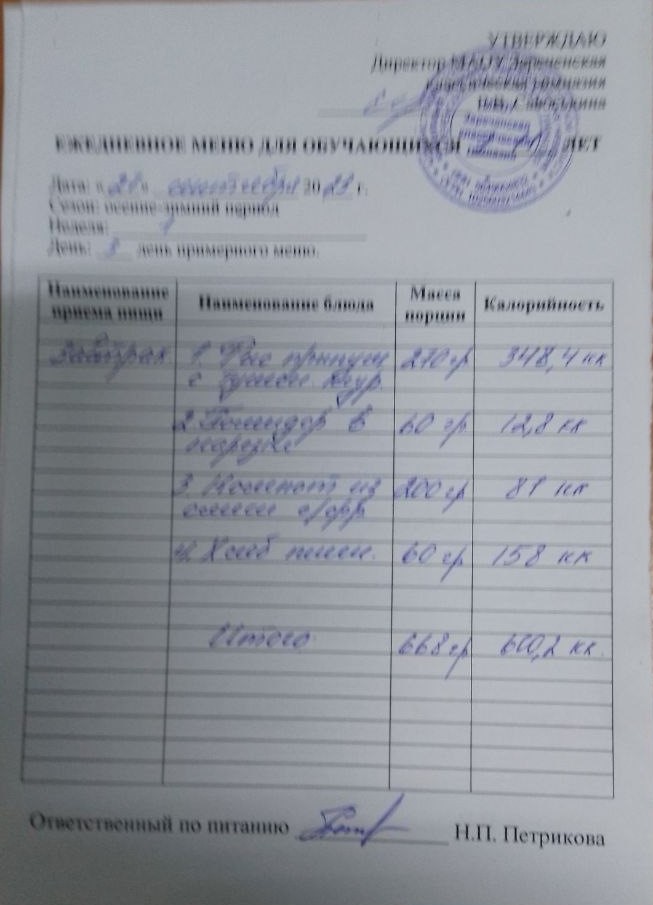 УТВЕРЖДАЮ
Директор МАОУ Зареченская
классическая гимназия
ЕЖЕДНЕВНОЕ МЕНЮ ДЛЯ ОБУЧАЮЩИХСЯ ЛЕТ
Дата: « 21 » сентября 20 г.
Сезон: осенне-зимний период
Неделя: 1
День: 3 день примерного меню.
Наименование приема пищи Наименование блюда Масса порции Калорийность
Завтрак 1. Рис припущ 270 гр 348,4 кк
с тушен. кур.
2. Помидор в 60 гр 12,8 кк
нарезке
3. Компот из 200 гр 81 кк
смеси с/фр
4. Хлеб пшен. 60 гр 158 кк
Итого 668 гр 600,2 кк.
Ответственный по питанию Н.П. Петрикова